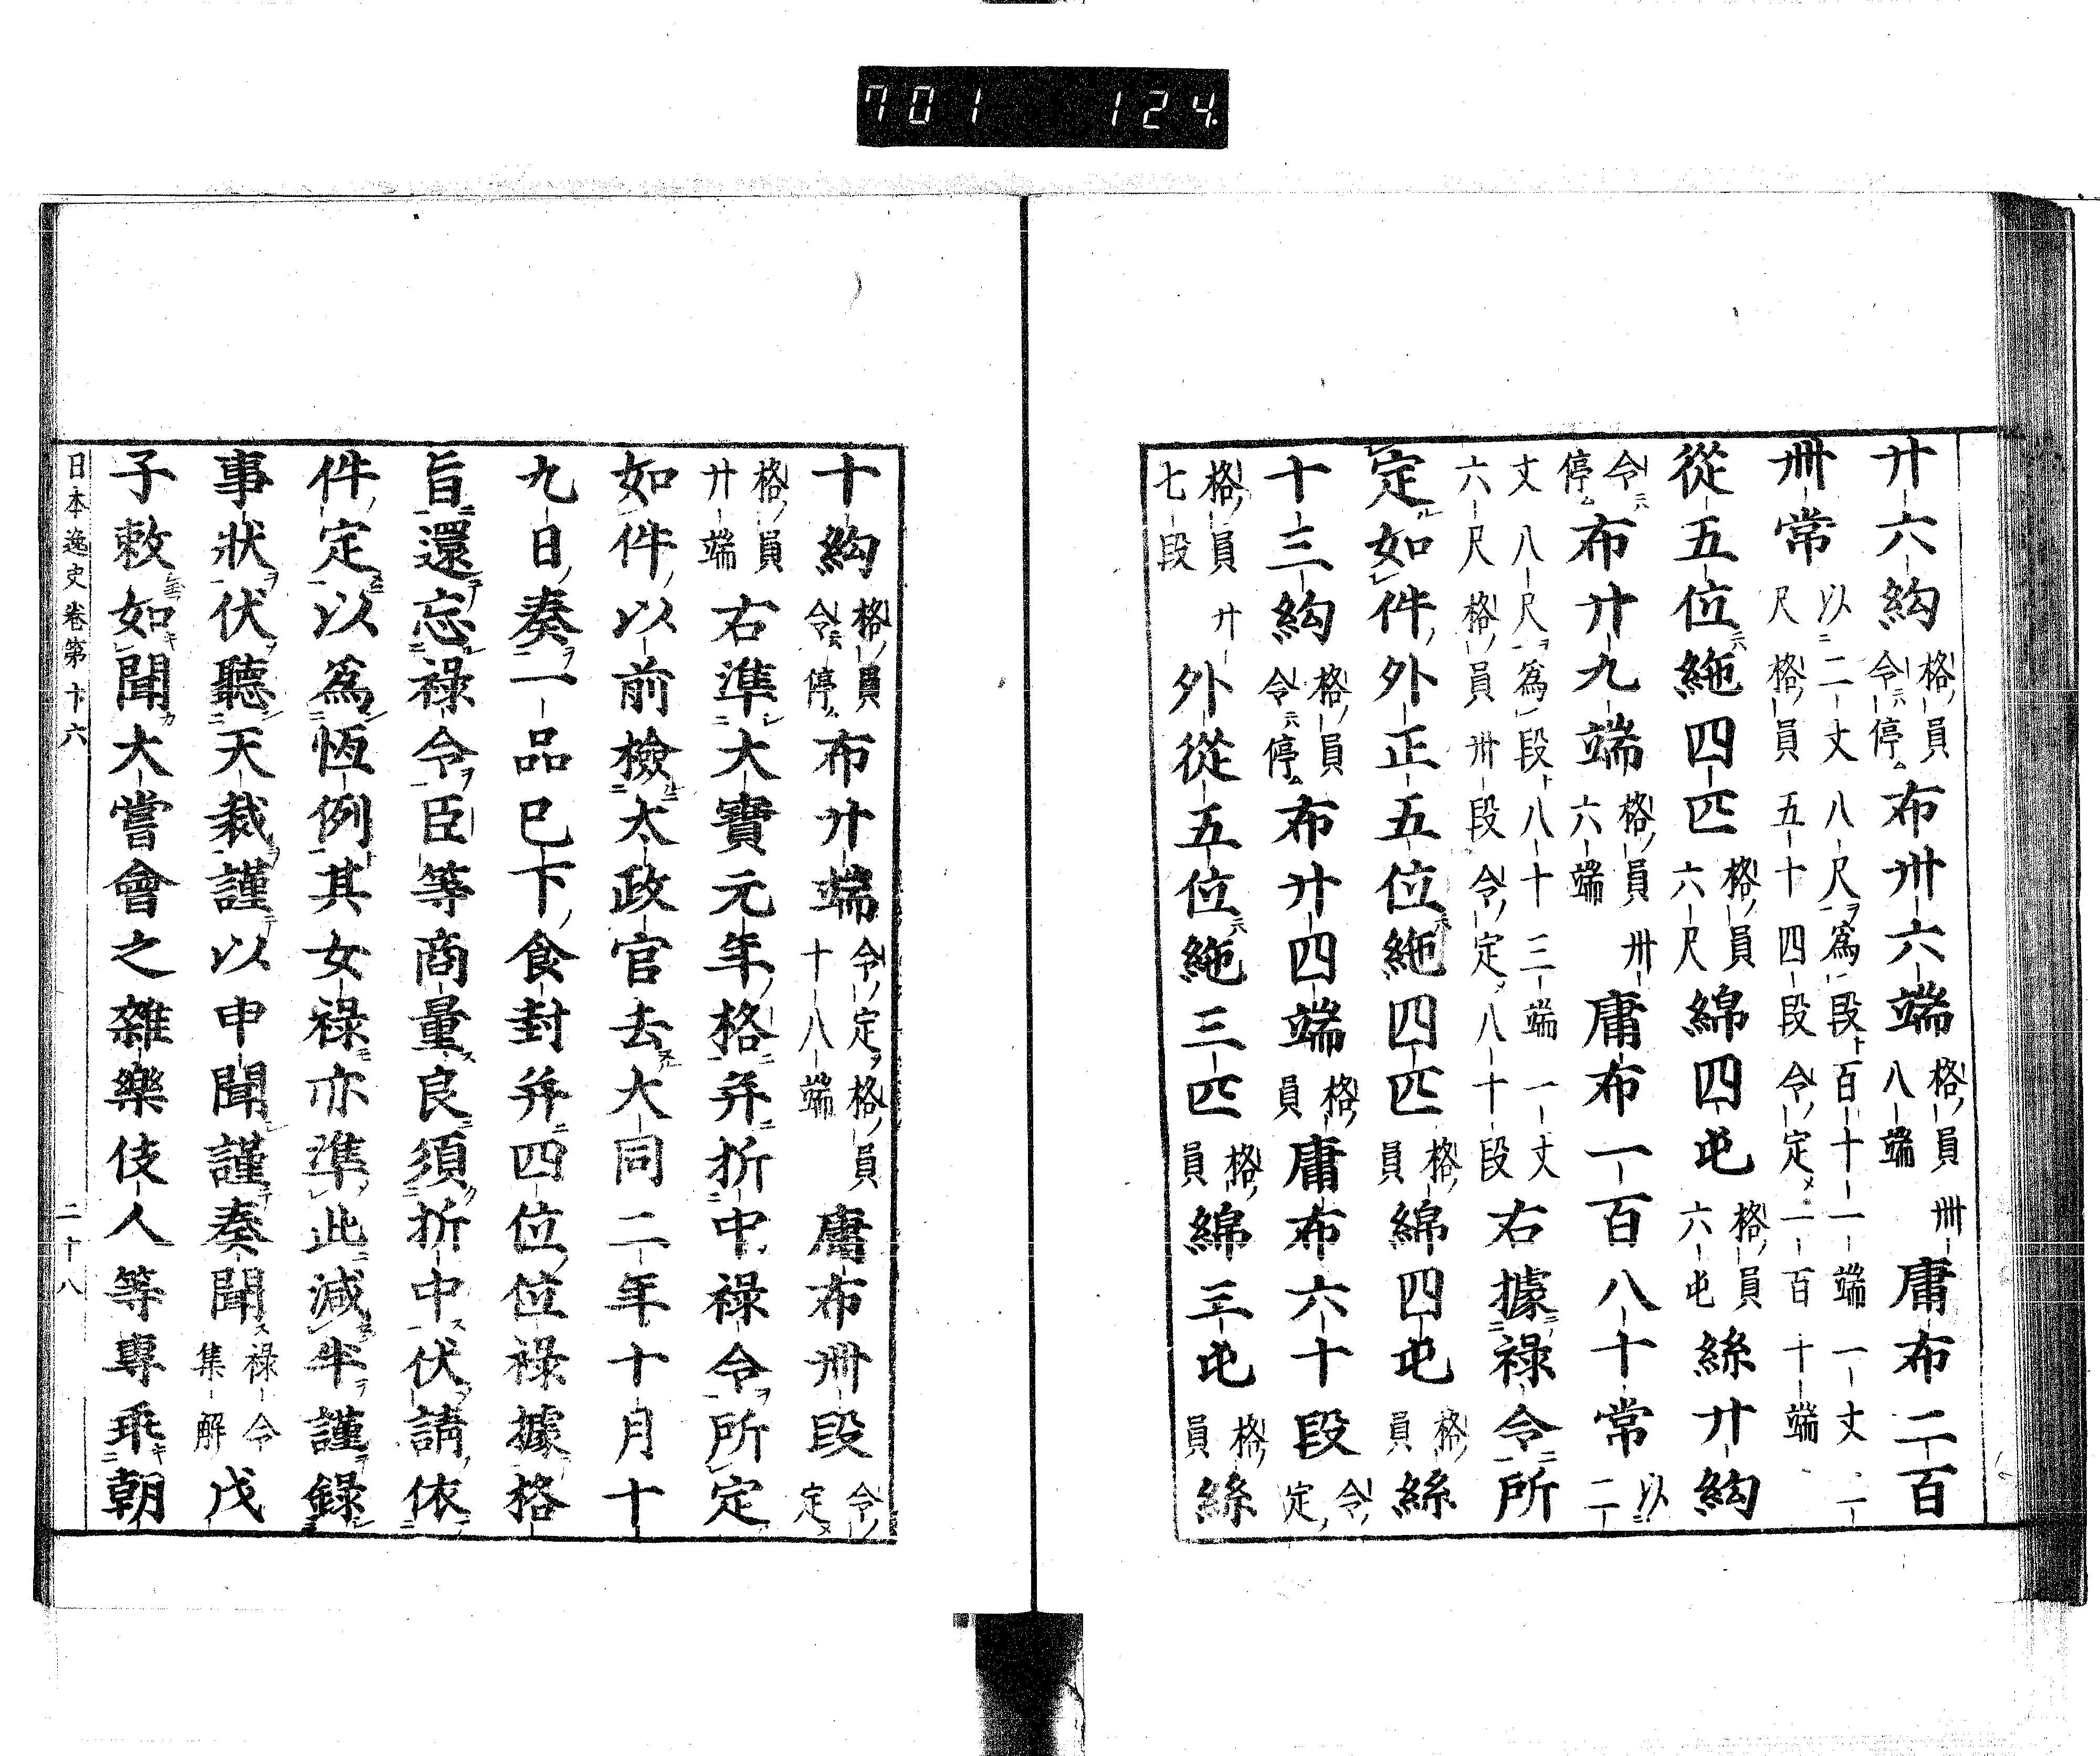 701 124
廾六絇格員令停布卅六端格員卅八端庸布二百
卌常以二丈八尺爲段百十一端一丈二尺格員五十四段令定一百十端
從五位絁四匹格員六尺綿四屯格員六屯絲廾絇
令停布廾九端格員卅六端庸布一百八十常以二
丈八尺爲段八十三端一丈六尺格員卌段令定八十段右據祿令所
定如件外正五位絁四匹格員綿四屯格員絲
十三絇格員令停布廾四端格員庸布六十段令定
格員廾七段外從五位絁三匹格員綿三屯格員絲
十絇格員令停布廾端令定格員十八端庸布卌段令定
格員廾端右準大寶元年格并折中祿令所定
如件以前檢太政官去大同二年十月十
九日奏一品已下食封并四位位祿據格
旨還忘祿令臣等商量良須折中伏請依
件定以爲恆例其女祿亦準此減半謹錄
事狀伏聽天裁謹以申聞謹奏聞祿令集解戊
子敕如聞大嘗會之雜樂伎人等專乖朝
日本逸史卷第十六 二十八